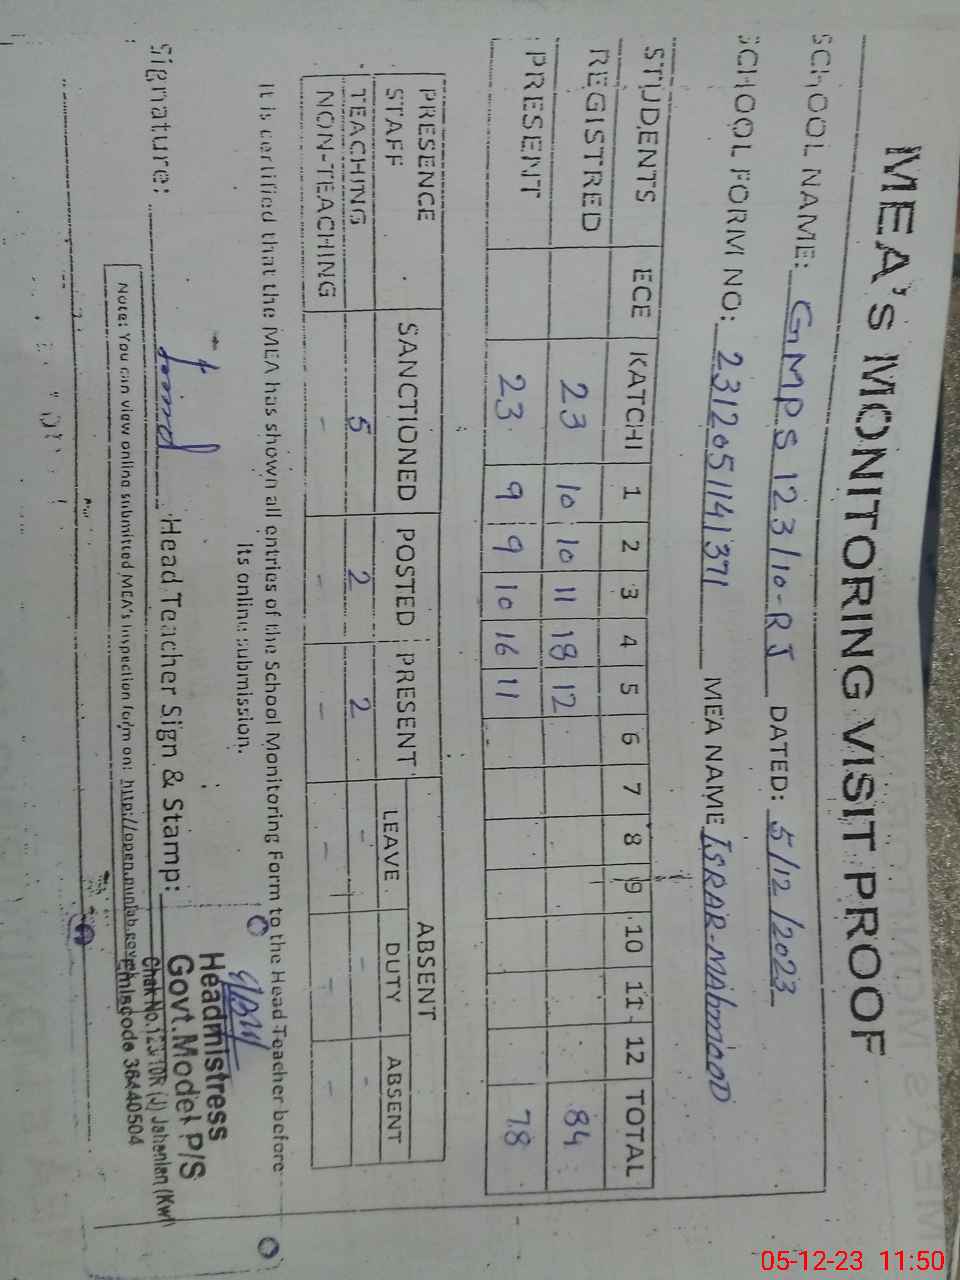 MEA's MONITORING VISIT PROOF
SCHOOL NAME: GMPS 123/10-RJ DATED: 5/12/2023
SCHOOL FORM NO: 2312051141371 MEA NAME ISRAR-MAHMOOD
STUDENTS ECE KATCHI 1 2 3 4 5 6 7 8 9 10 11 12 TOTAL
REGISTRED 23 10 10 11 18 12 84
PRESENT 23 9 9 10 16 11 78
PRESENCE SANCTIONED POSTED PRESENT ABSENT
STAFF LEAVE DUTY ABSENT
TEACHING 5 2 2 - - -
NON-TEACHING - - - - - -
It is certified that the MEA has shown all entries of the School Monitoring Form to the Head Teacher before
Its online submission.
Signature: Head Teacher Sign & Stamp:
Headmistress
Govt. Model P/S
Chak No.123 10R (J) Jahanian (Kwl)
emiscode 36440504
Note: You can view online submitted MEA's inspection form on: http://open.punjab.gov.pk
05-12-23 11:50